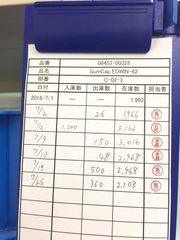 品番 08453-00328
品名 GumCap EDWIN-62
部番 C-02-3
日付 入庫数 出庫数 在庫数 担当者
2018/7/1 ー ー 1,992
7/2 26 1,966
7/2 1,200 3,166
7/9 150 3,016
7/13 48 2,968
7/19 500 2,468
7/25 360 2,108